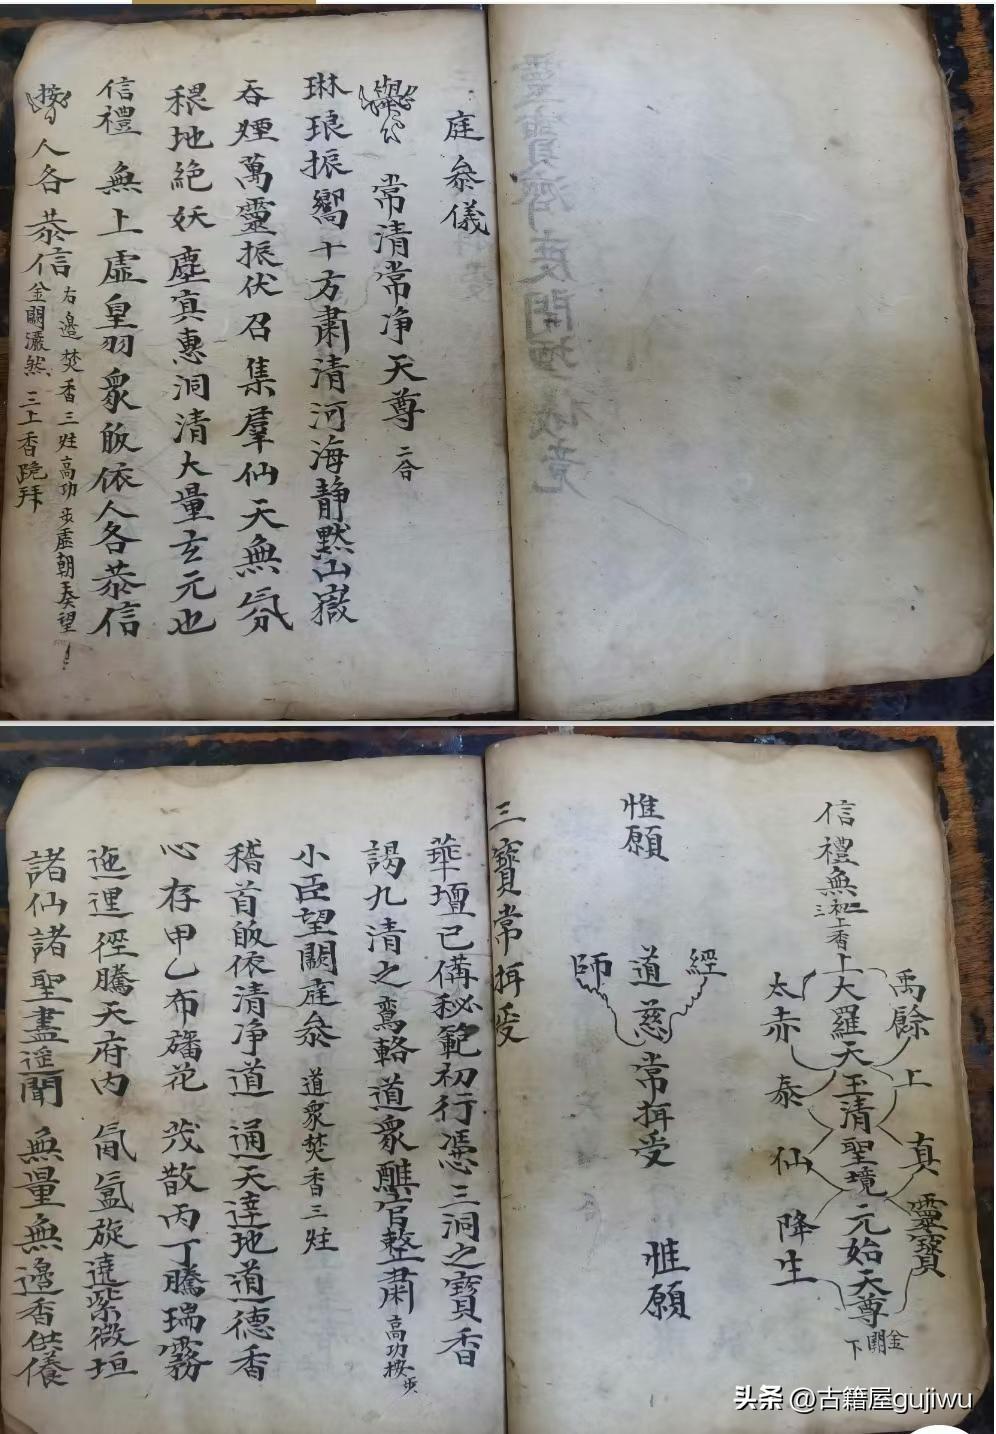 庭叅儀
常清常净天尊 二合
琳琅振嚮十方肅清河海静默山嶽
吞煙萬靈振伏召集羣仙天無氛
穢地絶妖塵寘惠洞清大量玄元也
信禮 無上虛皇羽衆皈依人各恭信
接 人各恭信 右邊焚香三炷高功步虛朝奏望
金闕瀟然三上香跪拜
禹餘 上 真 靈寶
信禮無 初二三上香 上大羅天玉清聖境元始天尊 金闕下
太赤 泰 仙 降生
經
惟願 道慈常拜受 惟願
師
三寶常拜受
華壇已備秘範初行憑三洞之寶香
謁九清之鸞輅道衆醮官整肅 高功按步
小臣望闕庭叅 道衆焚香三炷
稽首皈依清净道 通天達地道德香
心存甲乙布旛花 茂散丙丁騰瑞霧
迤逦徑騰天府内 氤氲旋遶紫微垣
諸仙諸聖盡遥聞 無量無邊香供養
头条 @古籍屋gujiwu